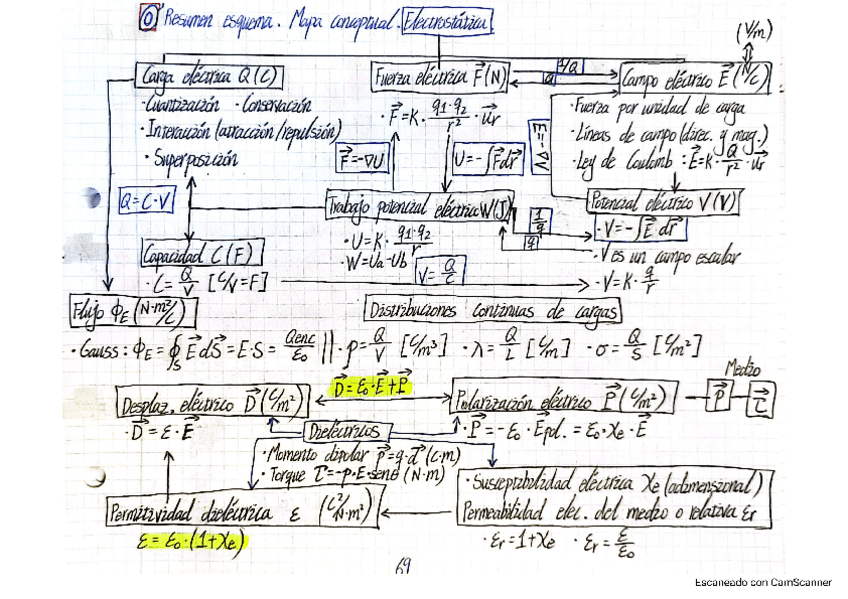 0 Resumen esquema. Mapa conceptual. Electrostática
(V/m)
Carga eléctrica Q (C)
· Cuantización · Conservación
· Interacción (atracción/repulsión)
· Superposición
Fuerza eléctrica F⃗ (N)
· F⃗ = K · q1·q2/r² · u⃗r
1/Q
Q
Campo eléctrico E⃗ (N/C)
· Fuerza por unidad de carga
· Líneas de campo (direc. y mag.)
· Ley de Coulomb : E⃗ = K · Q/r² · u⃗r
F⃗ = -∇U
U = -∫F⃗dr⃗
E = -∇V
Q = C · V
Trabajo potencial eléctrico W (J)
· U = K · q1·q2/r
· W = Ua - Ub
1/q
q
Potencial eléctrico V (V)
· V = -∫E⃗ · dr⃗
· V es un campo escalar
· V = K · q/r
Capacidad C (F)
· C = Q/V [C/V = F]
V = Q/C
Flujo ϕE (N·m²/C)
Distribuciones continuas de cargas
· Gauss : ϕE = ∮S E⃗ dS⃗ = E·S = Qenc/ε0 || · ρ = Q/V [C/m³] · λ = Q/L [C/m] · σ = Q/S [C/m²]
Desplaz. eléctrico D⃗ (C/m²)
· D⃗ = ε · E⃗
D⃗ = ε0 · E⃗ + P⃗
Polarización eléctrico P⃗ (C/m²)
· P⃗ = -ε0 · Epol. = ε0 · χe · E⃗
Medio
P⃗
τ⃗
Dieléctricos
· Momento dipolar P⃗ = q · d⃗ (C·m)
· Torque τ = -p · E · senθ (N·m)
· Susceptibilidad eléctrica χe (adimensional)
Permeabilidad elec. del medio o relativa εr
· εr = 1 + χe · εr = ε/ε0
Permitividad dieléctrica ε (C²/N·m²)
ε = ε0 · (1 + χe)
69
Escaneado con CamScanner